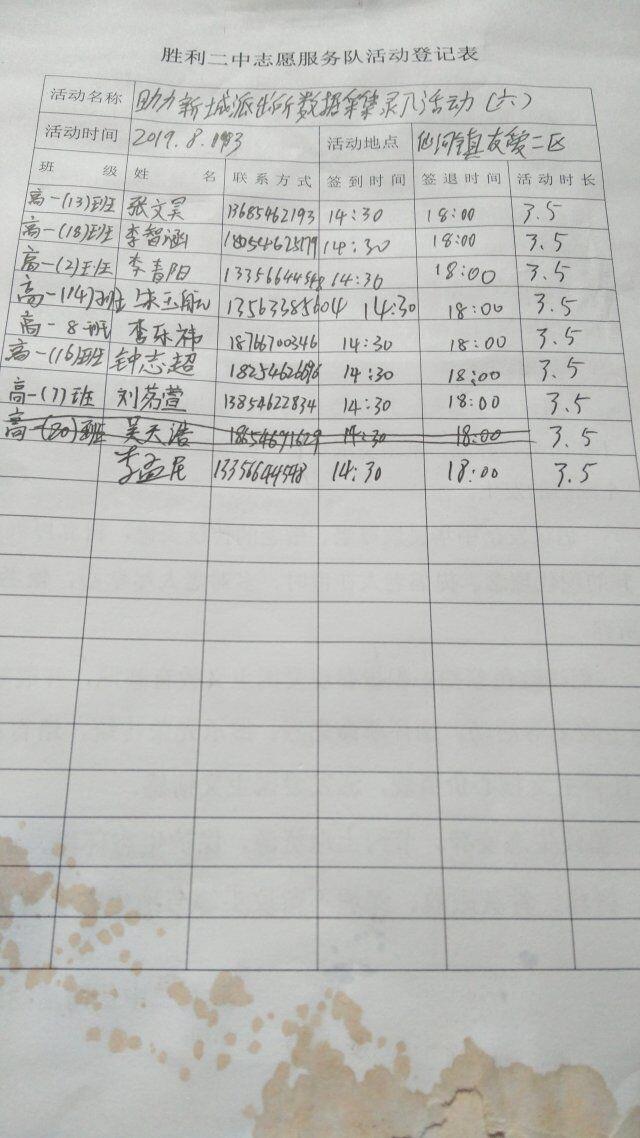 胜利二中志愿服务队活动登记表
活动名称 助力新城派出所数据采集录入活动（六）
活动时间 2019.8. 活动地点 仙河镇友爱二区
班级 姓名 联系方式 签到时间 签退时间 活动时长
高一(13)班 张文昊 13685462193 14:30 18:00 3.5
高一(18)班 李智涵 14:30 18:00 3.5
高一(2)班 李青阳 14:30 18:00 3.5
高一(14)班 宋玉航 13563385604 14:30 18:00 3.5
高一8班 李乐祎 18766700346 14:30 18:00 3.5
高一(16)班 钟志超 14:30 18:00 3.5
高一(7)班 刘茗萱 13854622834 14:30 18:00 3.5
高一(20)班 吴天浩 14:30 18:00 3.5
李孟尼 14:30 18:00 3.5